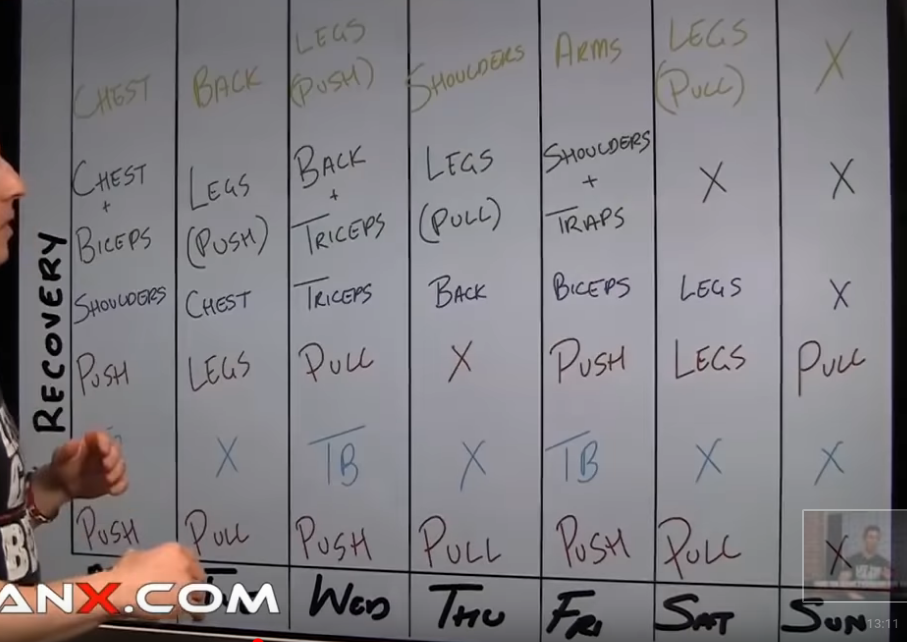 CHEST BACK LEGS (PUSH) SHOULDERS ARMS LEGS (PULL) X
CHEST + BICEPS LEGS (PUSH) BACK + TRICEPS LEGS (PULL) SHOULDERS + TRAPS X X
SHOULDERS CHEST TRICEPS BACK BICEPS LEGS X
PUSH LEGS PULL X PUSH LEGS PULL
X TB X TB X X
PUSH PULL PUSH PULL PUSH PULL X
RECOVERY
WED THU FRI SAT SUN
ANX.COM
13:11